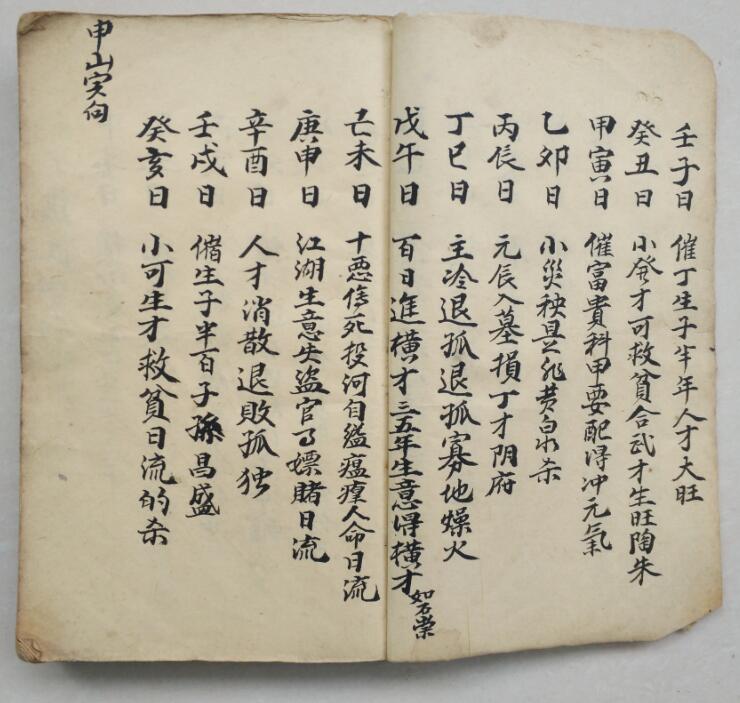 壬子日 催丁生子半年人才大旺
癸丑日 小発才可救貧合武才生旺陶朱
甲寅日 催富貴科甲要配得冲元氣
乙卯日 小災秧具兆黄白水杀
丙辰日 元辰入墓損丁才阴府
丁巳日 主冷退孤退孤寡地燥火
戊午日 百日進橫才三五年生意得橫才 如石崇
己未日 十悪傷死投河自縊瘟瘴人命日流
庚申日 江湖生意失盜官司嫖賭日流
辛酉日 人才消散退敗孤独
壬戌日 催生子半百子孫昌盛
癸亥日 小可生才救貧日流的杀
申山寅向